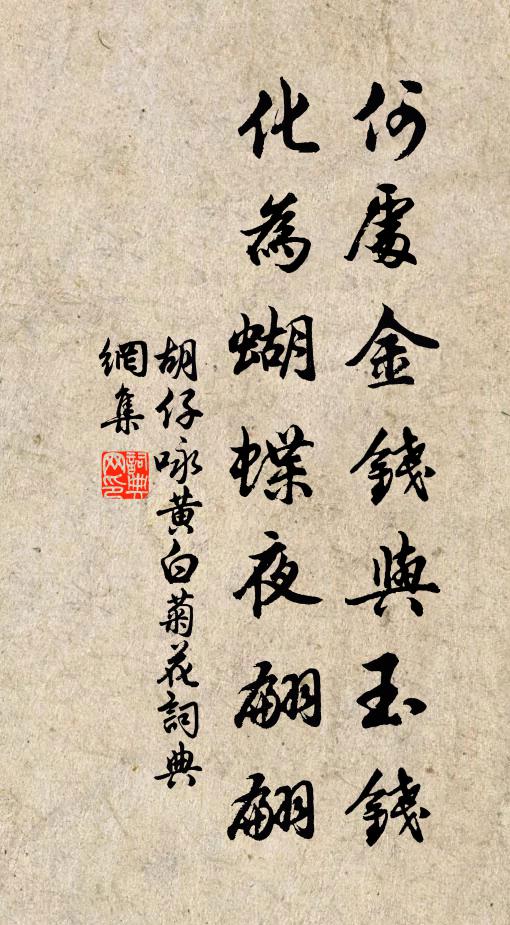 何處金錢與玉錢
化為蝴蝶夜翩翩
胡仔咏黄白菊花詞典
網集
詞典
网印